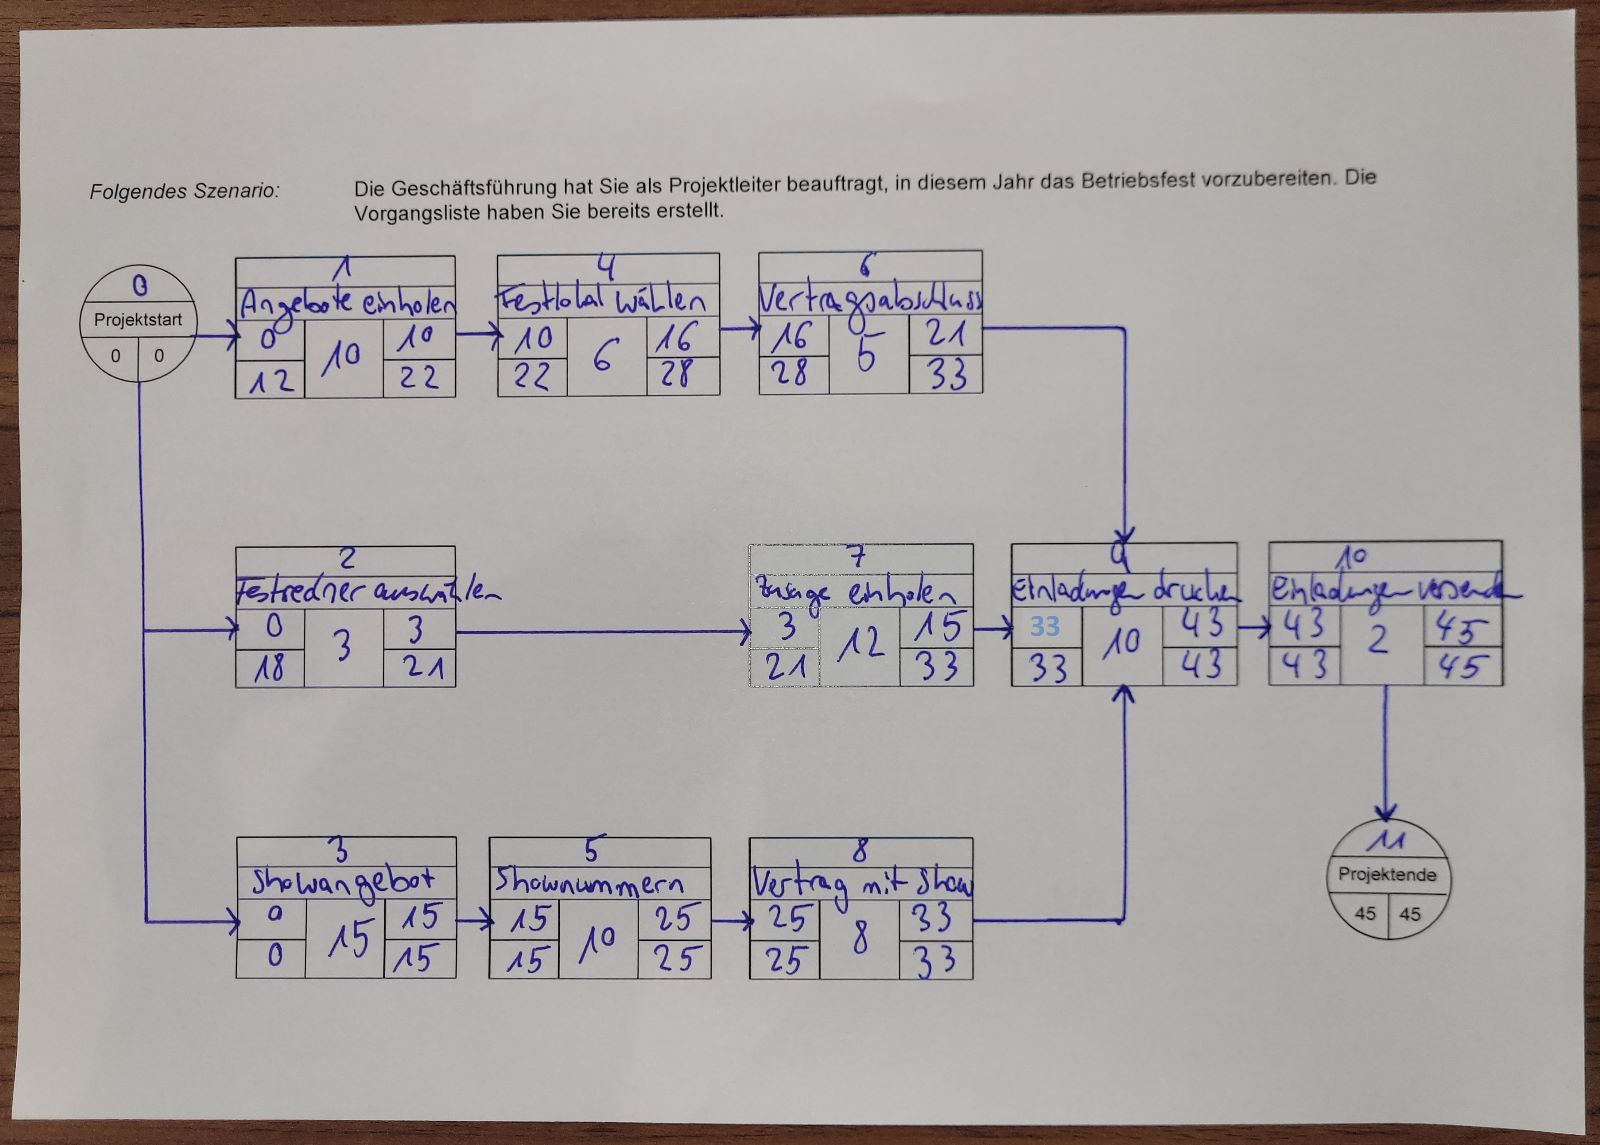 Folgendes Szenario: Die Geschäftsführung hat Sie als Projektleiter beauftragt, in diesem Jahr das Betriebsfest vorzubereiten. Die
Vorgangsliste haben Sie bereits erstellt.
0
Projektstart
0 0
1
Angebote einholen
0 10 10
12 22
4
Festlokal wählen
10 6 16
22 28
6
Vertragsabschluss
16 5 21
28 33
2
Festredner auswählen
0 3 3
18 21
7
Zusage einholen
3 12 15
21 33
9
Einladungen drucken
33 10 43
33 43
10
Einladungen versenden
43 2 45
43 45
3
Showangebot
0 15 15
0 15
5
Shownummern
15 10 25
15 25
8
Vertrag mit Show
25 8 33
25 33
11
Projektende
45 45